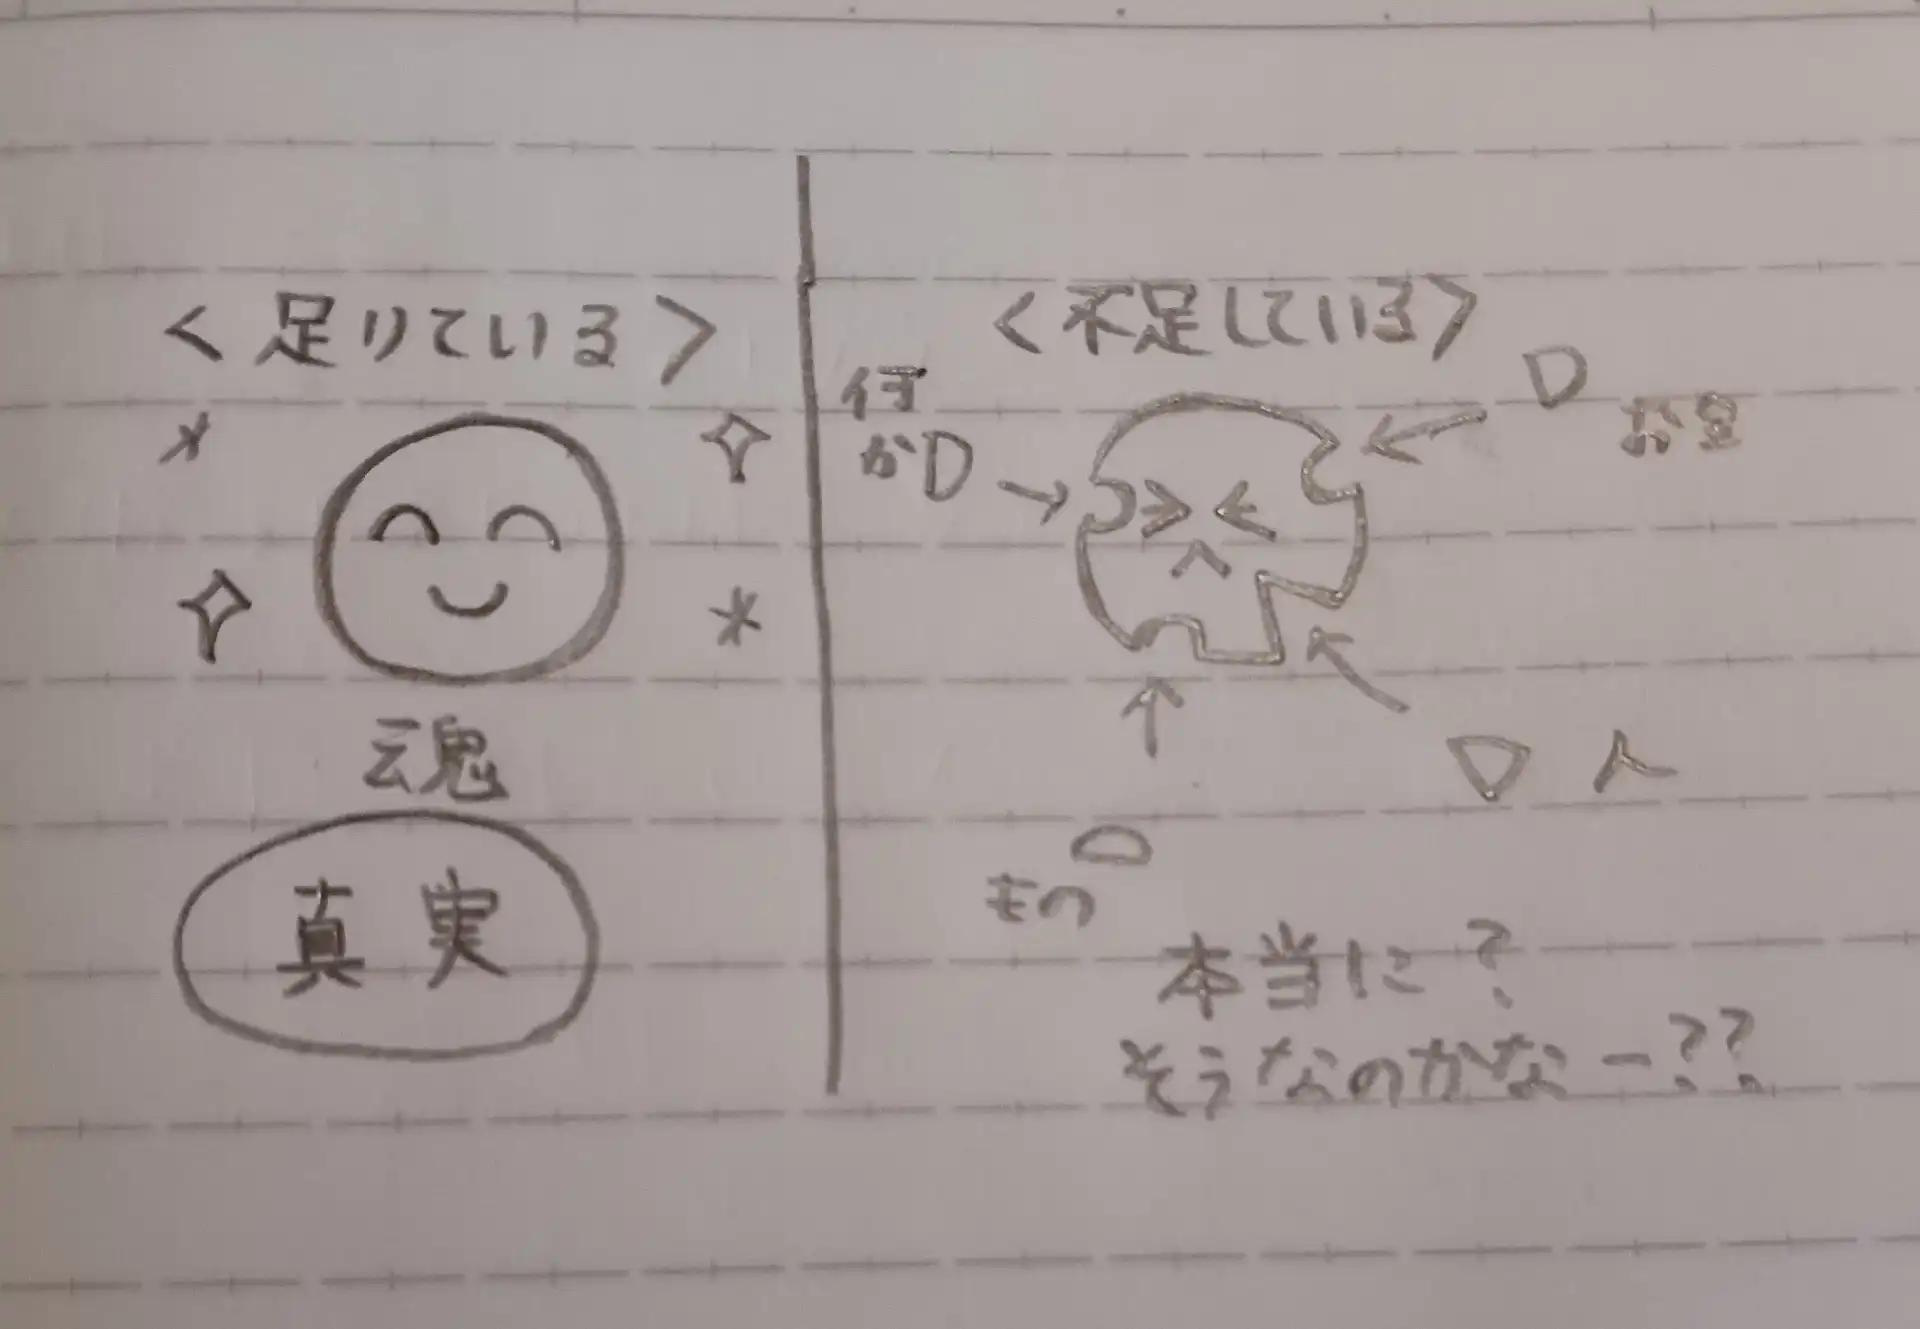 <足りている>
魂
真実
<不足している>
何
か
お金
人
もの
本当に?
そうなのかなー??